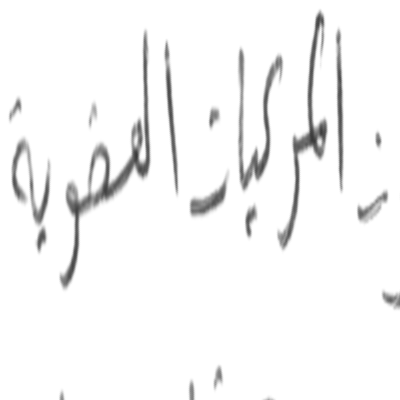 المركبات العضوية